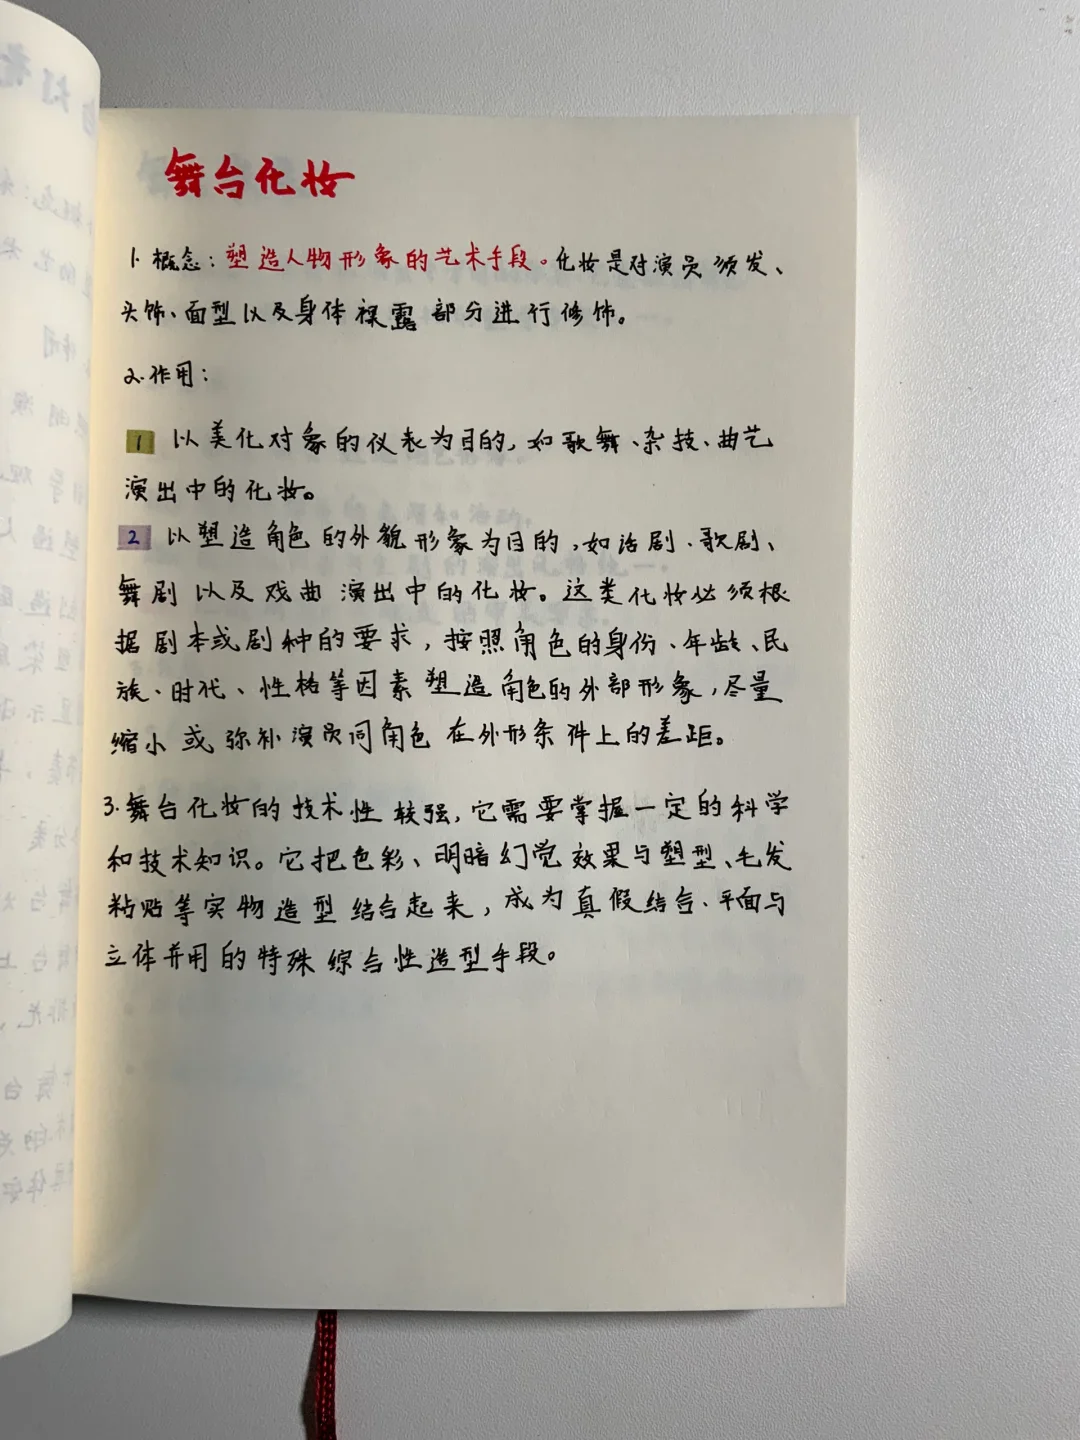 舞台化妆
1. 概念：塑造人物形象的艺术手段。化妆是对演员须发、
头饰、面型以及身体裸露部分进行修饰。
2. 作用：
1 以美化对象的仪表为目的，如歌舞、杂技、曲艺
演出中的化妆。
2 以塑造角色的外貌形象为目的，如话剧、歌剧、
舞剧以及戏曲演出中的化妆。这类化妆必须根
据剧本或剧种的要求，按照角色的身份、年龄、民
族、时代、性格等因素塑造角色的外部形象，尽量
缩小或弥补演员同角色在外形条件上的差距。
3. 舞台化妆的技术性较强，它需要掌握一定的科学
和技术知识。它把色彩、明暗幻觉效果与塑型、毛发
粘贴等实物造型结合起来，成为真假结合、平面与
立体并用的特殊综合性造型手段。